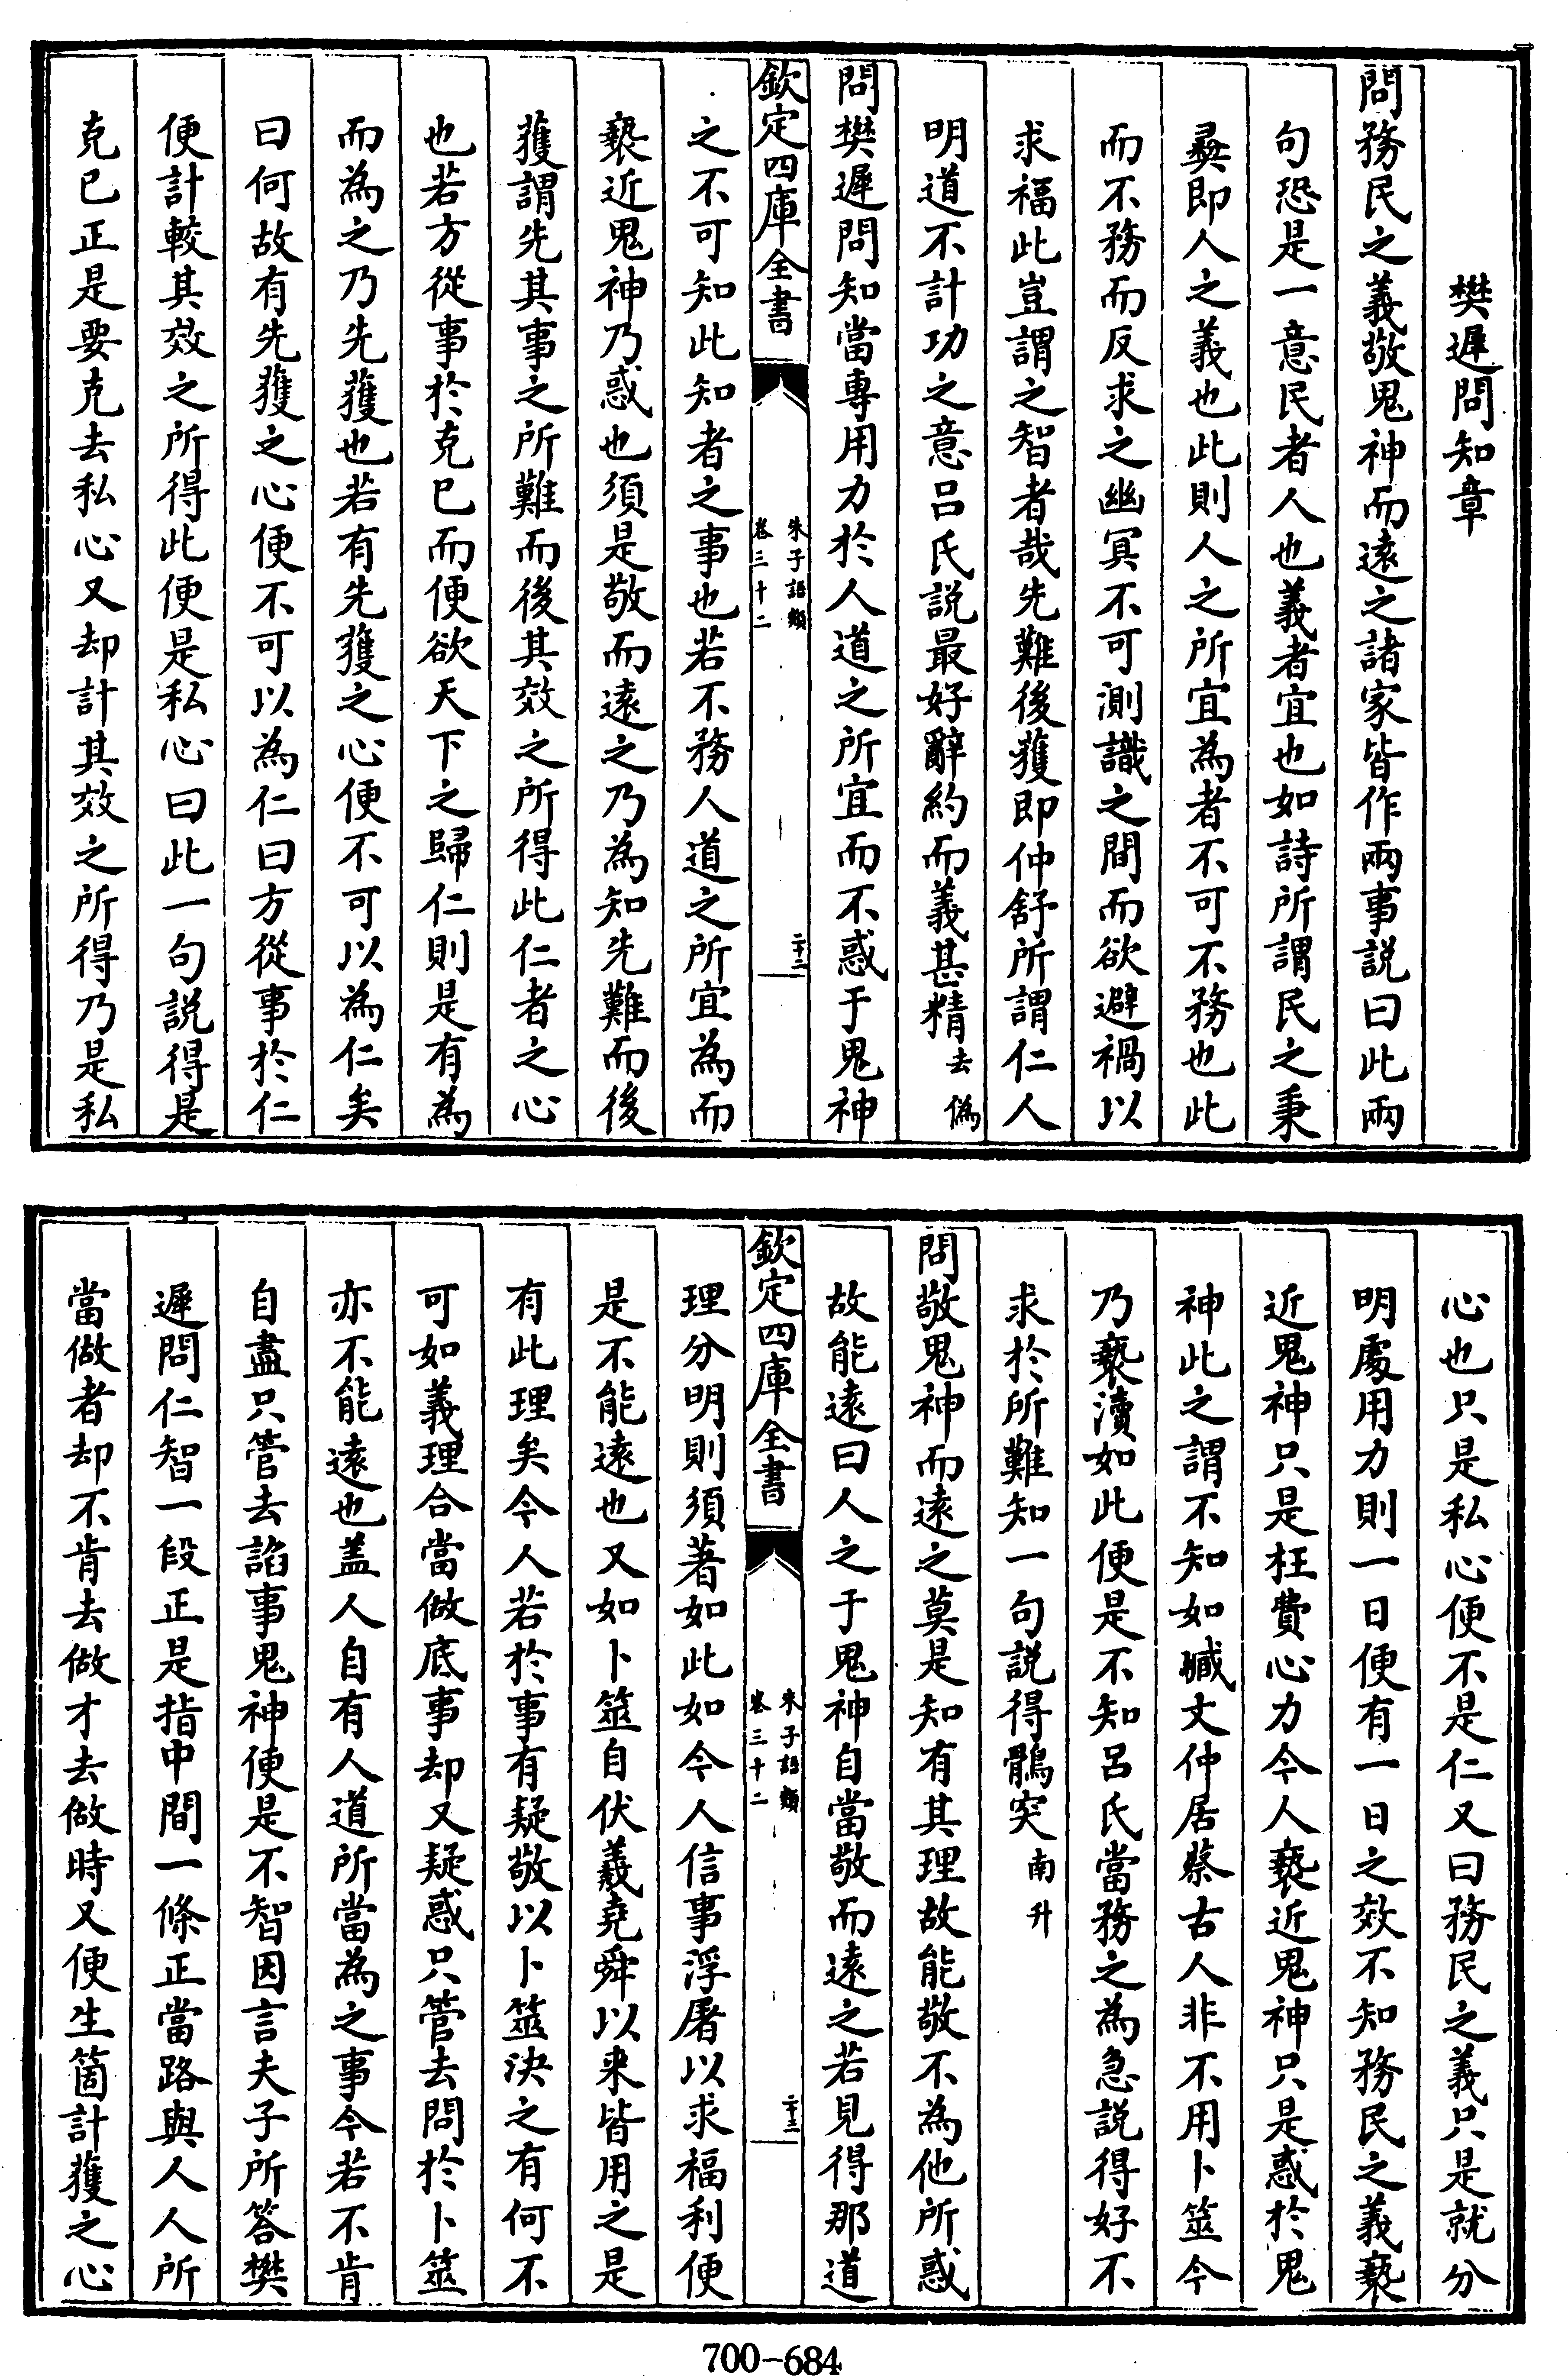 樊遲問知章
問務民之義敬鬼神而遠之諸家皆作兩事説曰此兩
句恐是一意民者人也義者宜也如詩所謂民之秉
彛即人之義也此則人之所宜為者不可不務也此
而不務而反求之幽冥不可測識之間而欲避禍以
求福此豈謂之智者哉先難後獲即仲舒所謂仁人
明道不計功之意吕氏説最好辭約而義甚精去偽
問樊遲問知當專用力於人道之所宜而不惑于鬼神
欽定四庫全書
朱子語類
卷三十二
二十二
之不可知此知者之事也若不務人道之所宜為而
褻近鬼神乃惑也須是敬而遠之乃為知先難而後
獲謂先其事之所難而後其效之所得此仁者之心
也若方從事於克已而便欲天下之歸仁則是有為
而為之乃先獲也若有先獲之心便不可以為仁矣
曰何故有先獲之心便不可以為仁曰方從事於仁
便計較其效之所得此便是私心曰此一句説得是
克已正是要克去私心又却計其效之所得乃是私
心也只是私心便不是仁又曰務民之義只是就分
明處用力則一日便有一日之效不知務民之義褻
近鬼神只是枉費心力今人褻近鬼神只是惑於鬼
神此之謂不知如臧文仲居蔡古人非不用卜筮今
乃褻瀆如此便是不知吕氏當務之為急説得好不
求於所難知一句説得鶻突南升
問敬鬼神而遠之莫是知有其理故能敬不為他所惑
故能遠曰人之于鬼神自當敬而遠之若見得那道
欽定四庫全書
朱子語類
卷三十二
二十三
理分明則須著如此如今人信事浮屠以求福利便
是不能遠也又如卜筮自伏羲堯舜以来皆用之是
有此理矣今人若於事有疑敬以卜筮決之有何不
可如義理合當做底事却又疑惑只管去問於卜筮
亦不能遠也盖人自有人道所當為之事今若不肯
自盡只管去諂事鬼神便是不智因言夫子所答樊
遲問仁智一段正是指中間一條正當路與人人所
當做者却不肯去做才去做時又便生箇計獲之心
700-684